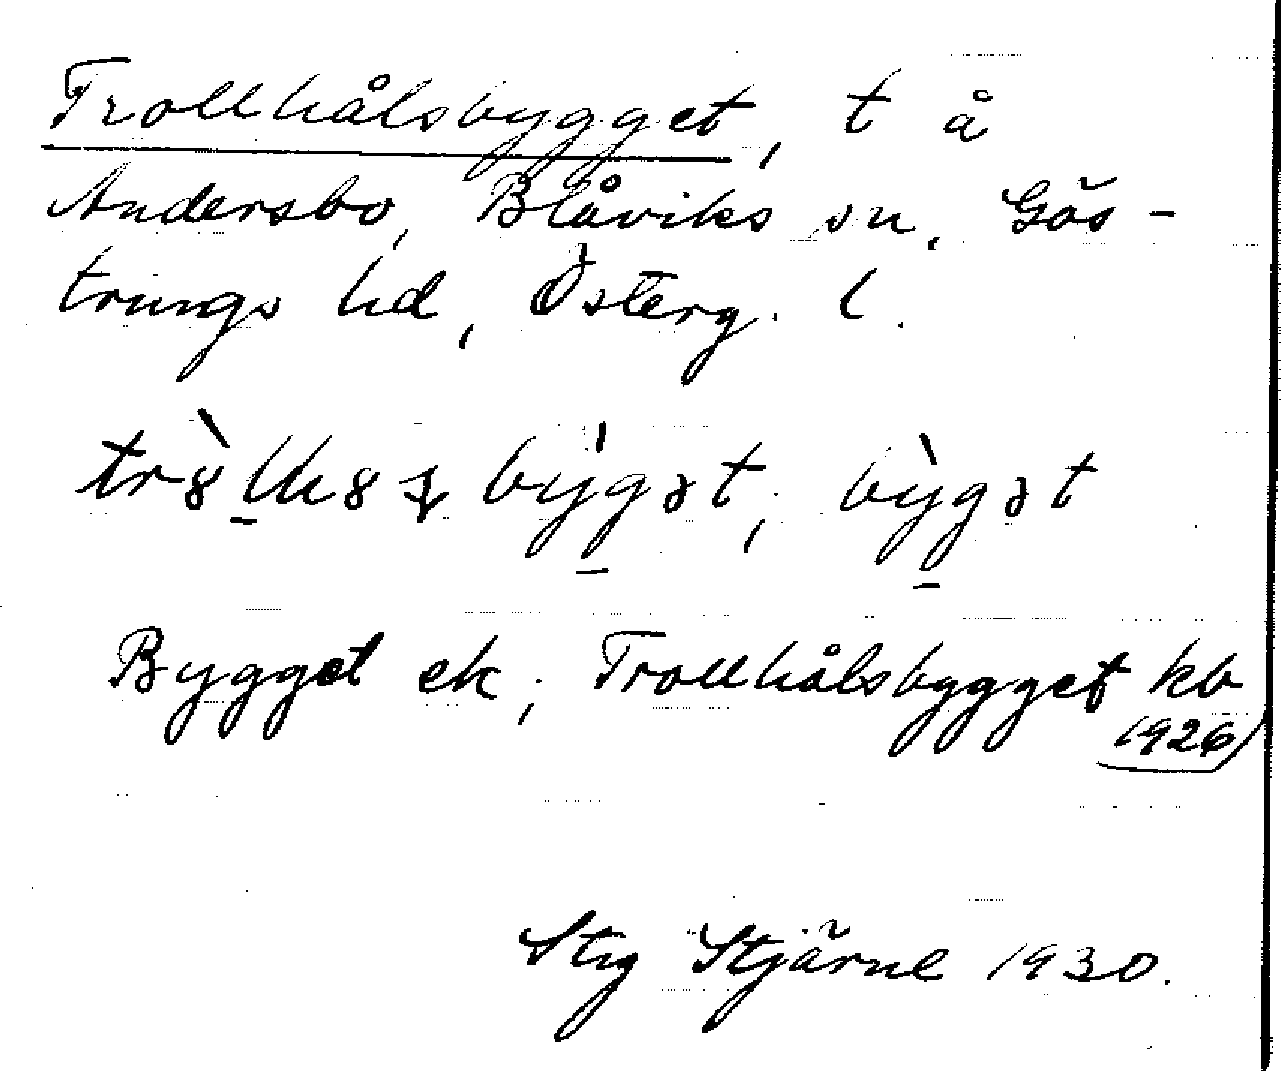 Trollhålsbygget, t å
Andersbo, Blåviks sn. Gös-
trings hd, Österg. l.
bỳgət
Bygget ek; Trollhålsbygget kb
1926
Stig Stjärne 1930.